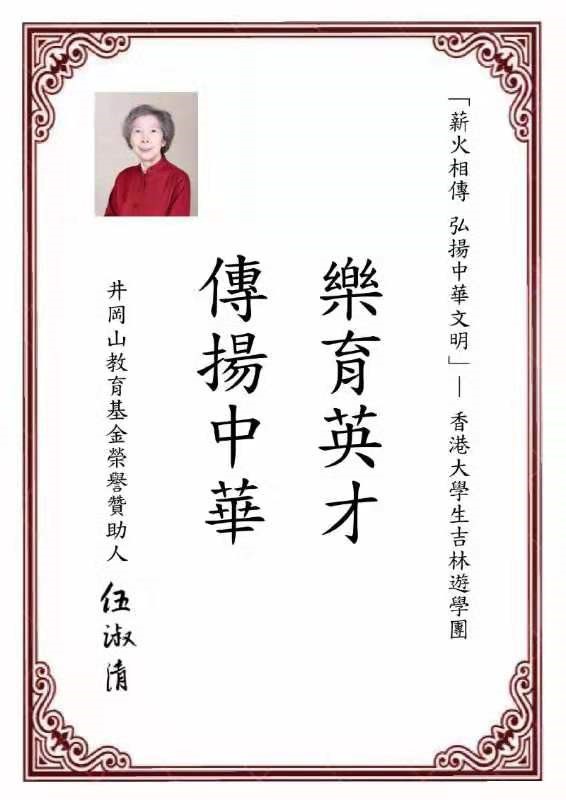 「薪火相傳 弘揚中華文明」— 香港大學生吉林遊學團
樂育英才
傳揚中華
井岡山教育基金榮譽贊助人 伍淑清